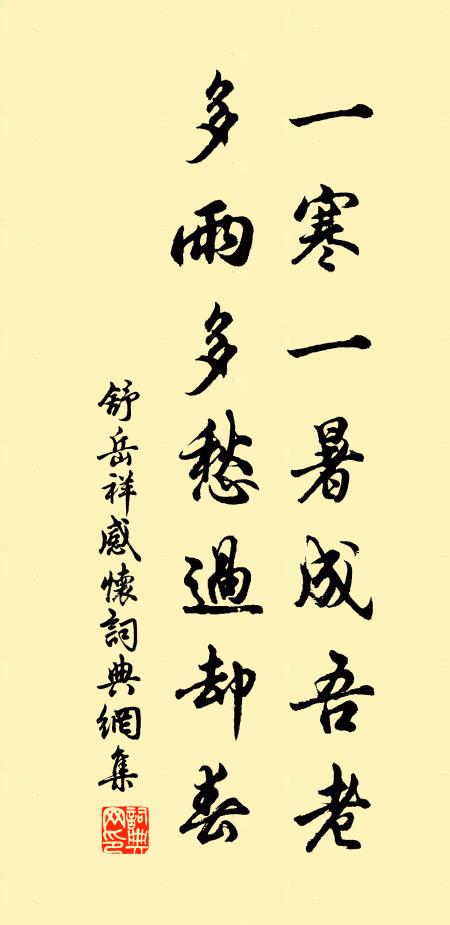 一寒一暑成吾老
多雨多愁過却春
舒岳祥感懷詞典網集
詞典网印